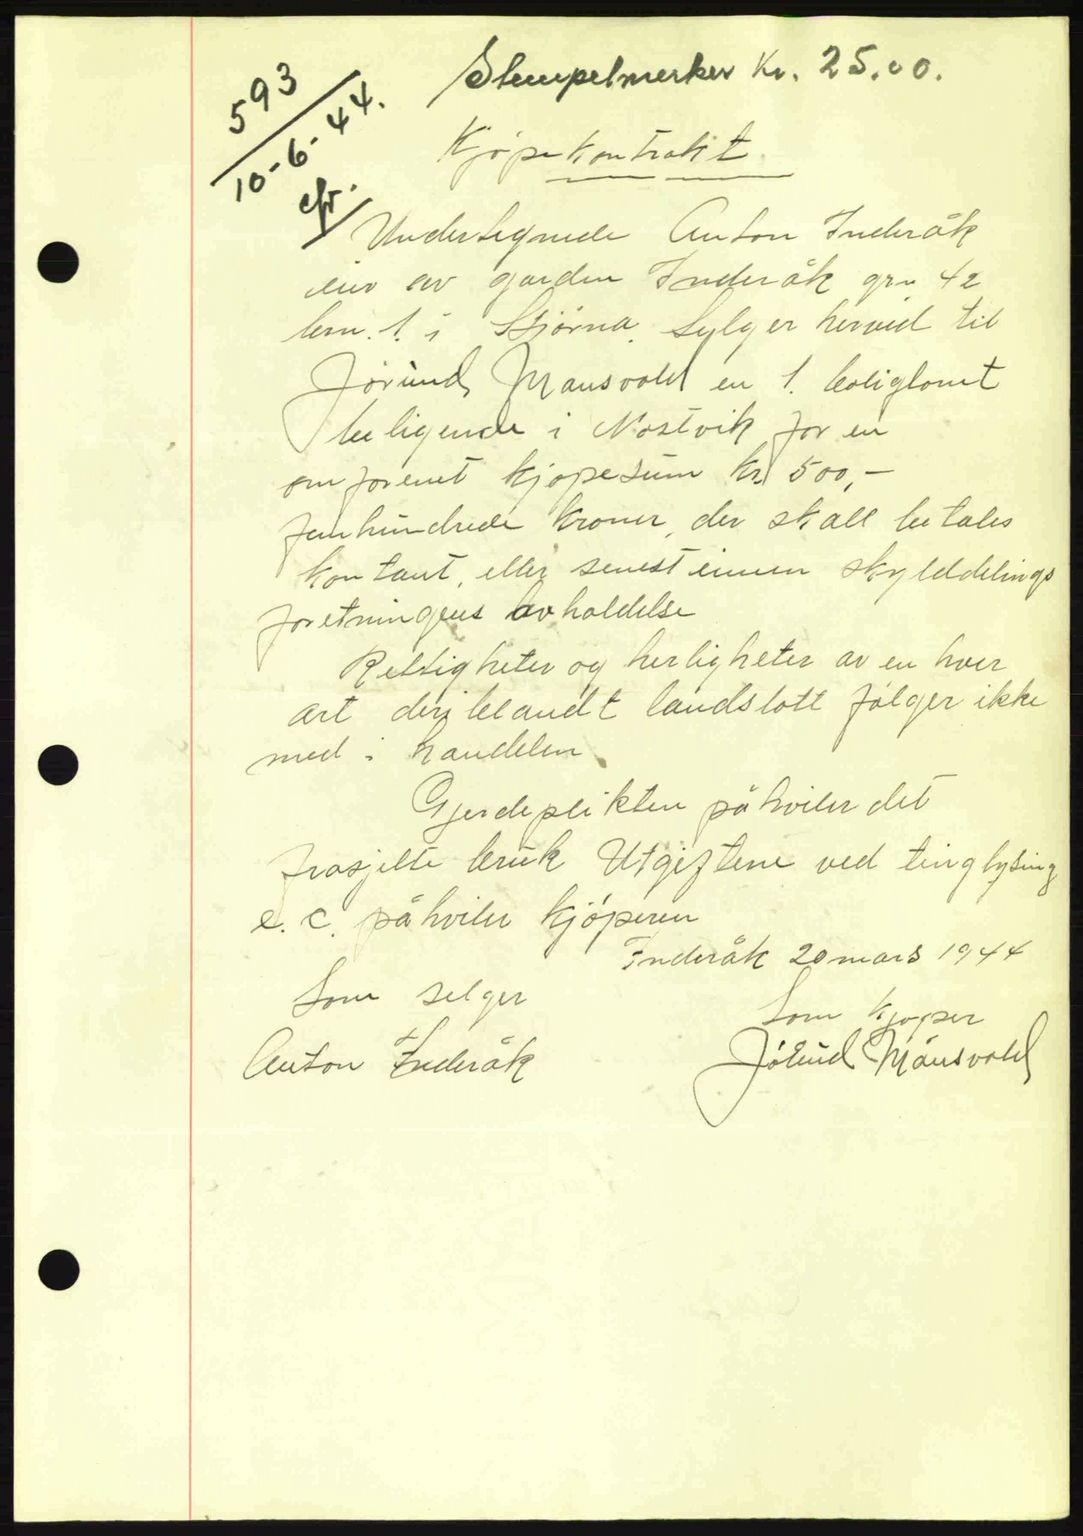 Stempelmerker Kr. 25.00.
593
10-6-44.
Kjøpekontrakt.
Undertegnede Anton Inderåk
eier av garden Inderåk grn 42
brn. 1. i Stjørna. Sylger herved til
Jørund Mansvold en 1. boligtomt
beligende i Nostvik for en
omforenet kjøpesum kr. 500,-
femhundrede kroner, der skall betales
kontant, eller senest innen skylddelings
foretningens avholdelse
Rettigheter og herligheter av en hver
art deriblandt landslott følger ikke
med i handelen.
Gjerdeplikten påhviler det
frasjelte bruk Utgiftene ved tinglysing
e. c. påhviler kjøperen
Inderåk 20 mars 1944
Som selger
Som kjøper
Anton Inderåk
Jørund Månsvold